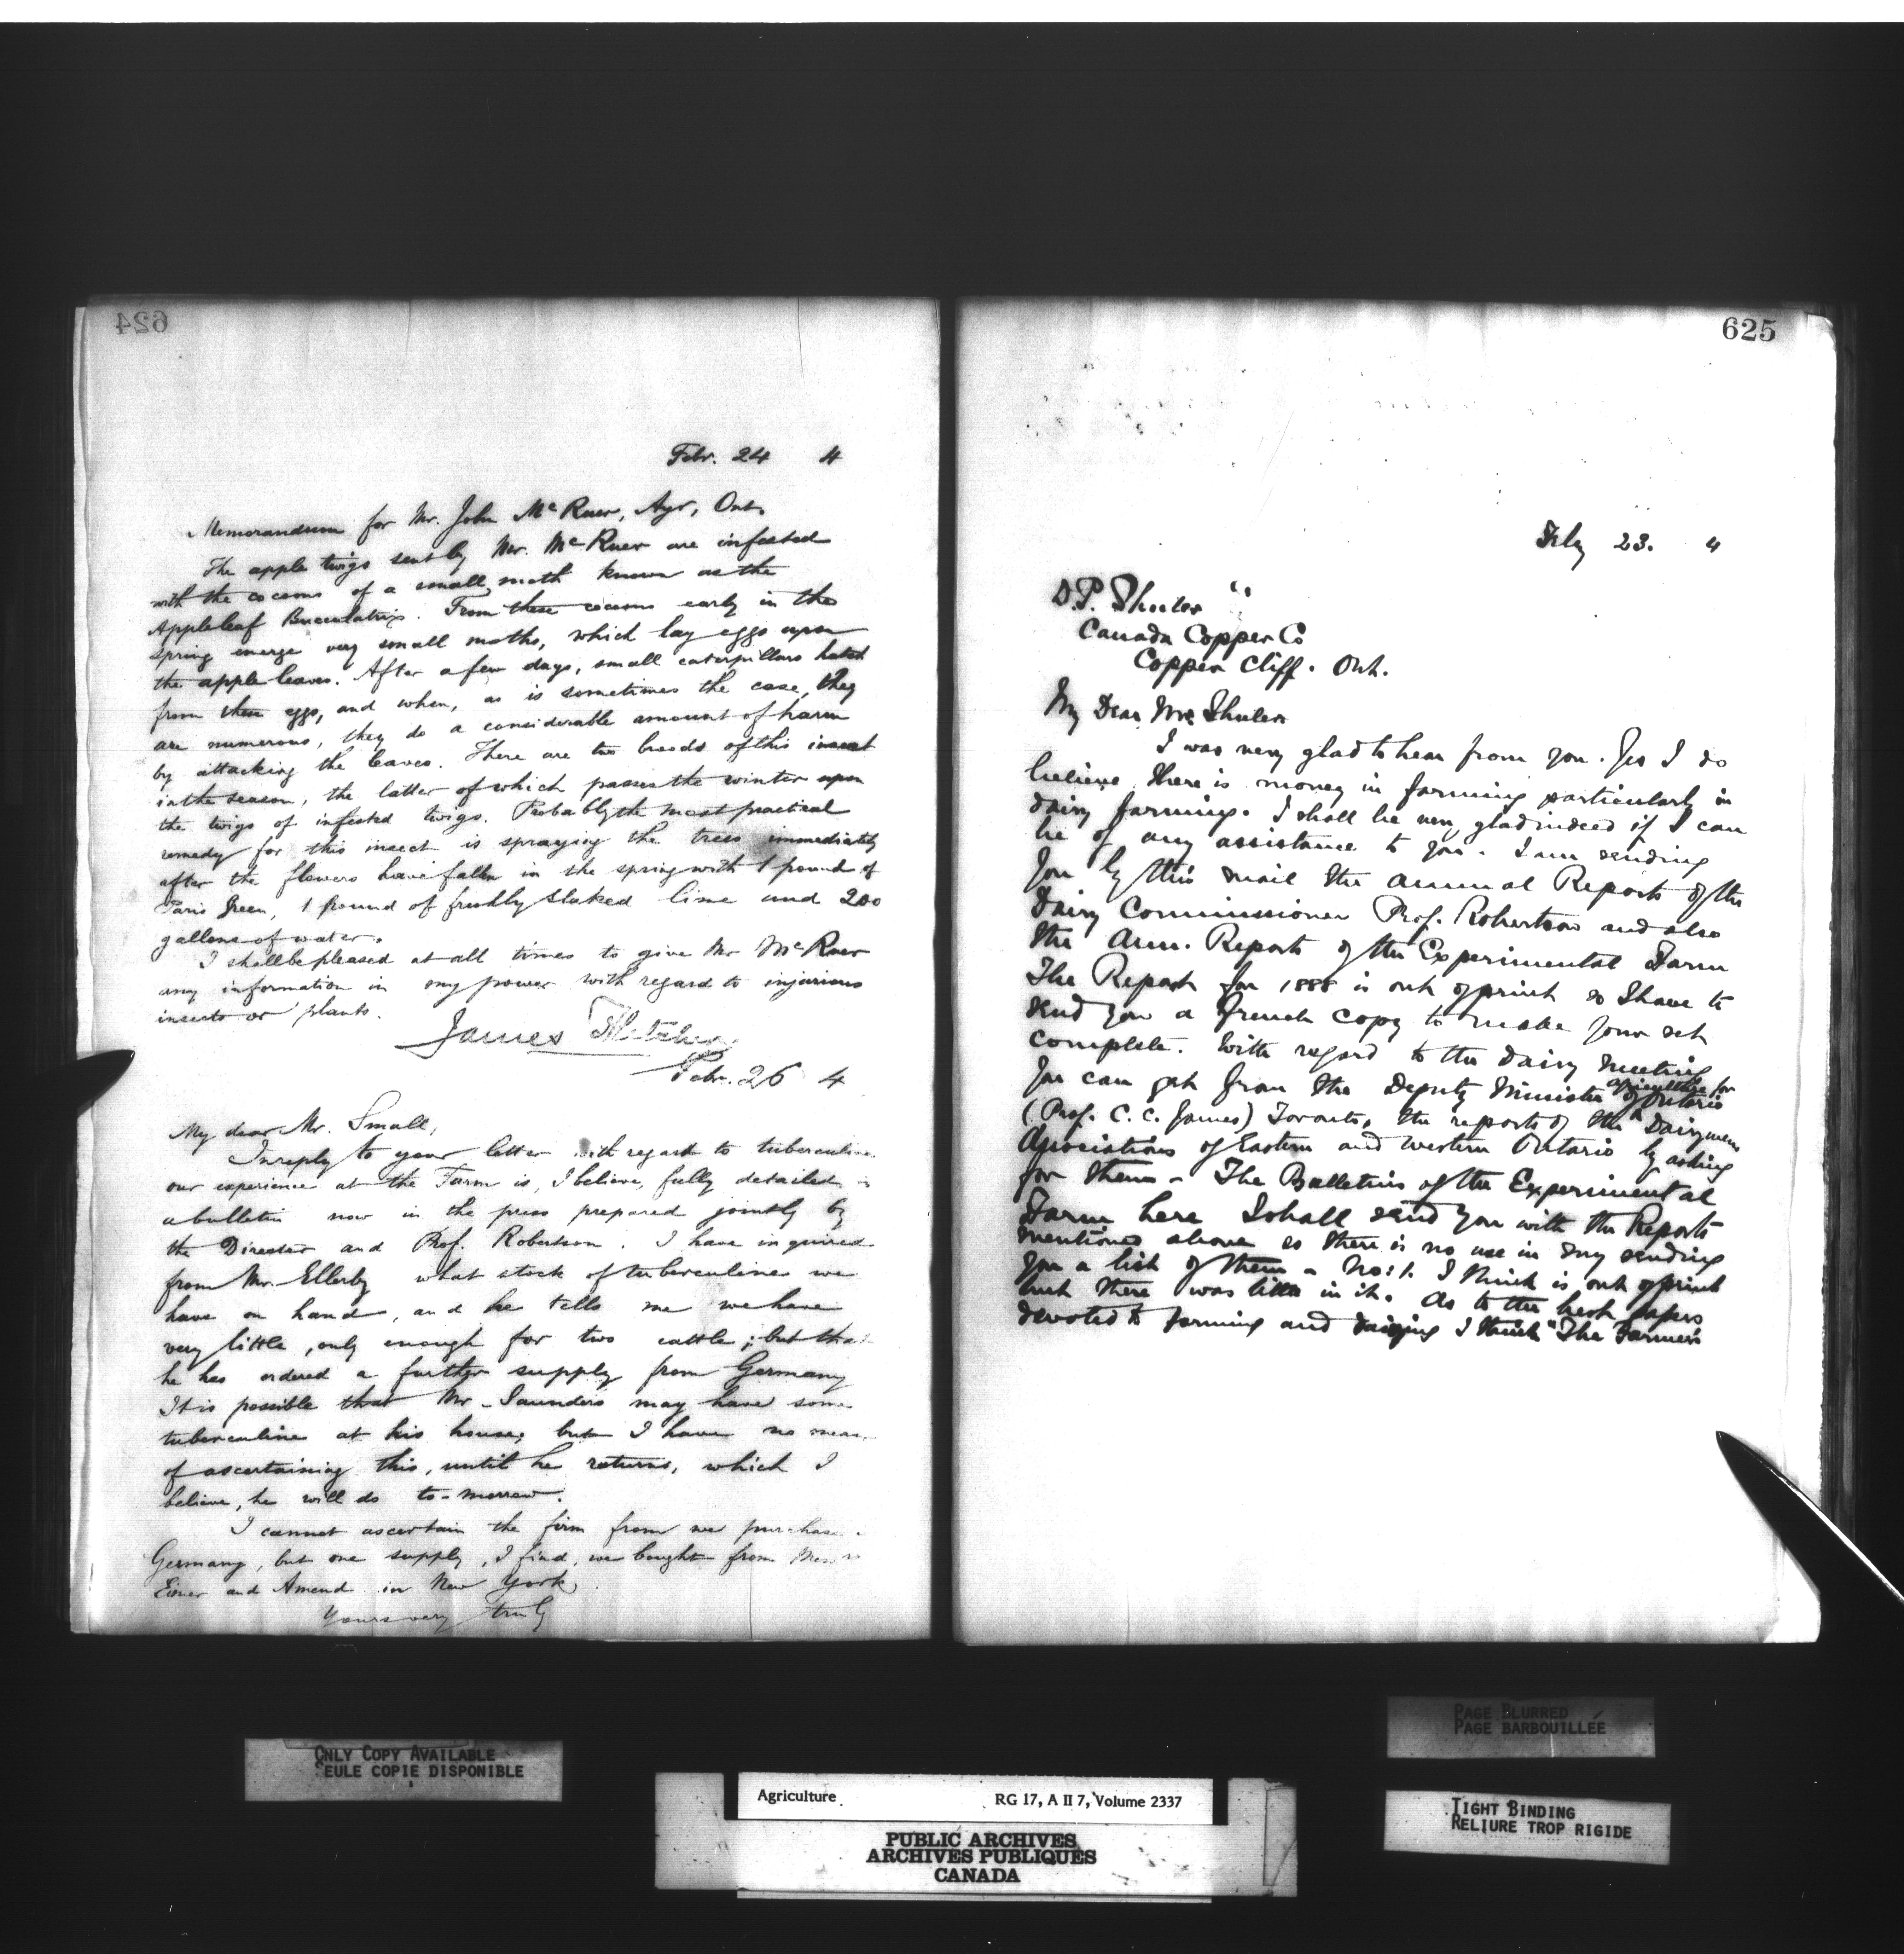 624
Febr. 24 4
Memorandum for Mr. John McRuer, Ayr, Ont.
The apple twigs sent by Mr. McRuer are infested
with the cocoons of a small moth known as the
Appleleaf Bucculatrix. From these cocoons early in the
spring emerge very small moths, which lay eggs upon
the apple leaves. After a few days, small caterpillars hatch
from these eggs, and when, as is sometimes the case, they
are numerous, they do a considerable amount of harm
by attacking the leaves. There are two broods of this insect
in the season, the latter of which passes the winter upon
the twigs of infested twigs. Probably the most practical
remedy for this insect is spraying the trees immediately
after the flowers have fallen in the spring with 1 pound of
Paris Green, 1 pound of freshly slaked lime and 200
gallons of water.
I shall be pleased at all times to give Mr McRuer
any information in my power with regard to injurious
insects or plants.
James Fletcher
Febr. 26 4
My dear Mr. Small,
In reply to your letter with regard to tuberculine
our experience at the Farm is, I believe, fully detailed
a bulletin now in the press prepared jointly by
the Director and Prof. Robertson. I have inquired
from Mr. Ellerby what stock of tuberculine we
have on hand, and he tells me we have
very little, only enough for two cattle; but that
he has ordered a further supply from Germany
It is possible that Mr. Saunders may have some
tuberculine at his house, but I have no means
of ascertaining this, until he returns, which I
believe, he will do to-morrow.
I cannot ascertain the firm from we purchase
Germany, but one supply, I find, we bought from Messrs
Eimer and Amend in New York.
Yours very truly
625
Feby 23. 4
D.P. Shuler
Canada Copper Co
Copper Cliff. Ont.
My Dear Mr. Shuler
I was very glad to hear from you. Yes I do
believe there is money in farming particularly in
dairy farming. I shall be very glad indeed if I can
be of any assistance to you. I am sending
you by this mail the annual Reports of the
Dairy Commissioner Prof. Robertson and also
the Ann. Reports of the Experimental Farm
The Report for 1888 is out of print so I have to
send you a French copy to make your set
complete. With regard to the dairy meeting
you can get from the Deputy Minister of agriculture for Ontario
(Prof. C. C. James) Toronto, the reports of the Dairymens
Associations of Eastern and Western Ontario by asking
for them - The Bulletins of the Experimental
Farm here I shall send you with the Reports
mentioned above so there is no use in my sending
you a list of them - No: 1. I think is out of print
but there was little in it. As to the best papers
devoted to farming and dairying I think "The Farmer's
ONLY COPY AVAILABLE
SEULE COPIE DISPONIBLE
Agriculture RG 17, A II 7, Volume 2337
PUBLIC ARCHIVES
ARCHIVES PUBLIQUES
CANADA
PAGE BLURRED
PAGE BARBOUILLÉE
TIGHT BINDING
RELIURE TROP RIGIDE